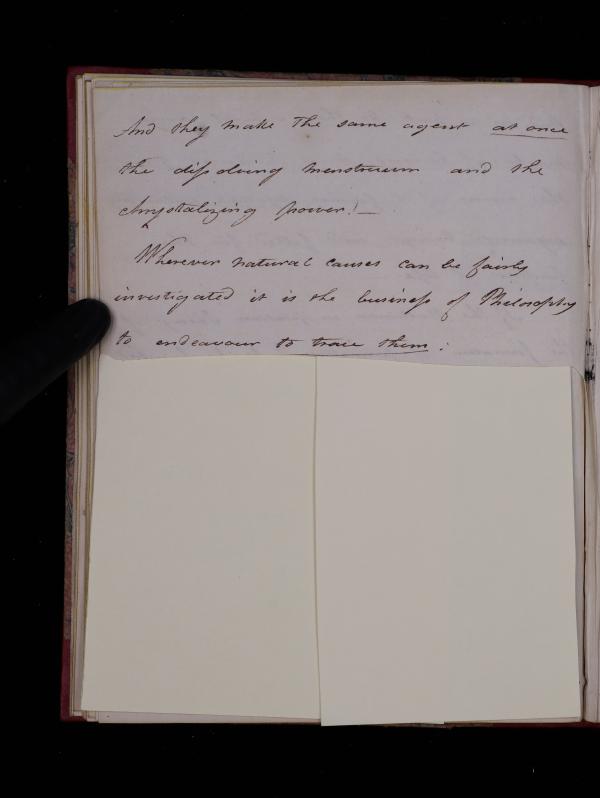 And they make The same agent at once
the dissolving menstruum and the
Chrystalizing power! —
Wherever natural causes can be fairly
investigated it is the business of Philosophy
to endeavour to trace them: